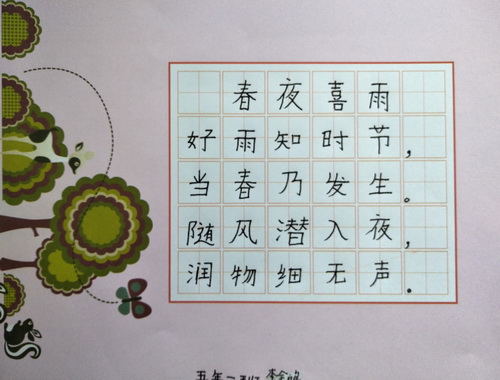 春夜喜雨
好雨知时节，
当春乃发生。
随风潜入夜，
润物细无声.
五年一班